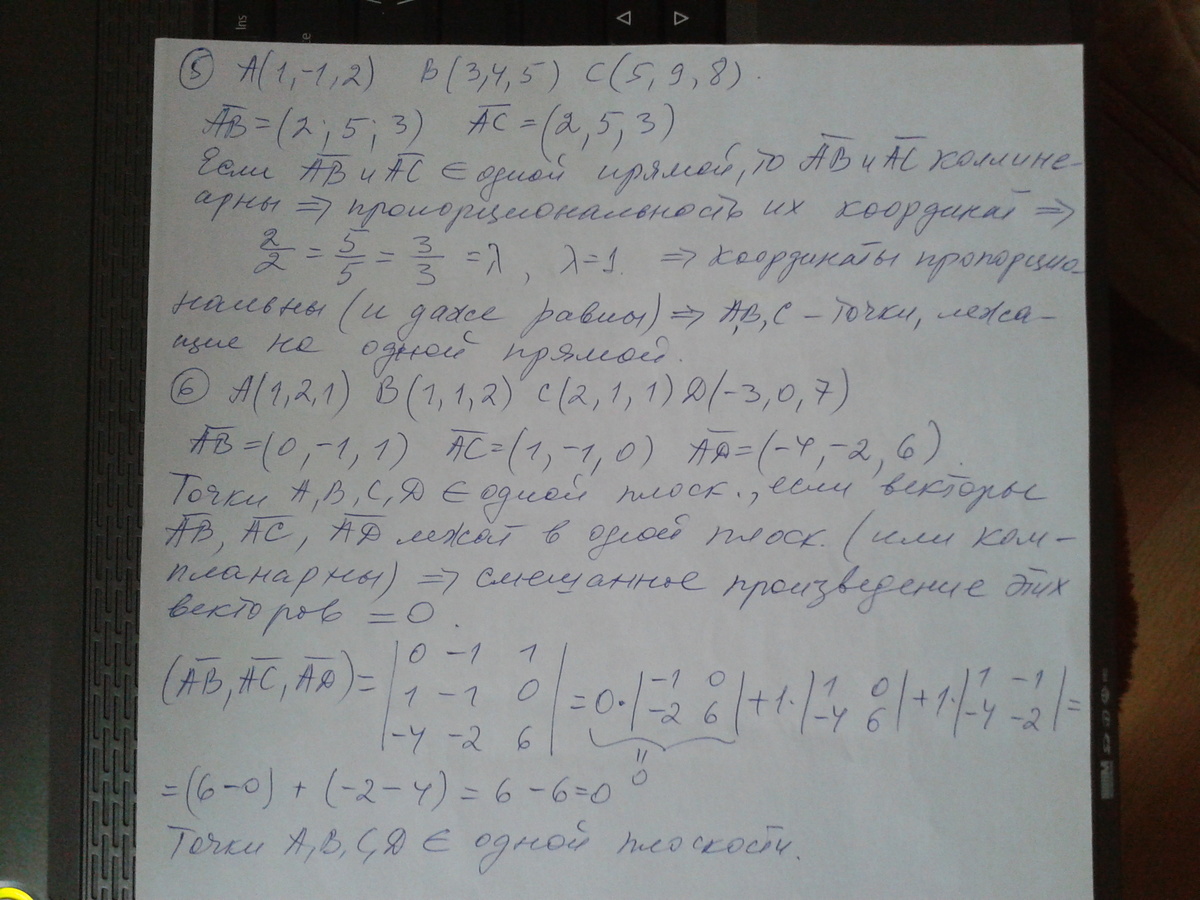 ⑤ A(1,-1,2) B(3,4,5) C(5,9,8).
A̅B̅=(2; 5; 3) A̅C̅=(2,5,3)
Если A̅B̅ и A̅C̅ ∈ одной прямой, то A̅B̅ и A̅C̅ коллине-
арны ⇒ пропорциональность их координат ⇒
2/2 = 5/5 = 3/3 = λ, λ=1. ⇒ координаты пропорцио-
нальны (и даже равны) ⇒ A,B,C – точки, лежа-
щие на одной прямой.
⑥ A(1,2,1) B(1,1,2) C(2,1,1) D(-3,0,7)
A̅B̅=(0,-1,1) A̅C̅=(1,-1,0) A̅D̅=(-4,-2,6).
Точки A,B,C,D ∈ одной плоск., если векторы
A̅B̅, A̅C̅, A̅D̅ лежат в одной плоск. (или ком-
планарны) ⇒ смешанное произведение этих
векторов = 0.
(A̅B̅, A̅C̅, A̅D̅) = |0 -1 1; 1 -1 0; -4 -2 6| = 0·|-1 0; -2 6| + 1·|1 0; -4 6| + 1·|1 -1; -4 -2| =
" 0
= (6-0) + (-2-4) = 6-6=0
Точки A,B,C,D ∈ одной плоскости.
Ins